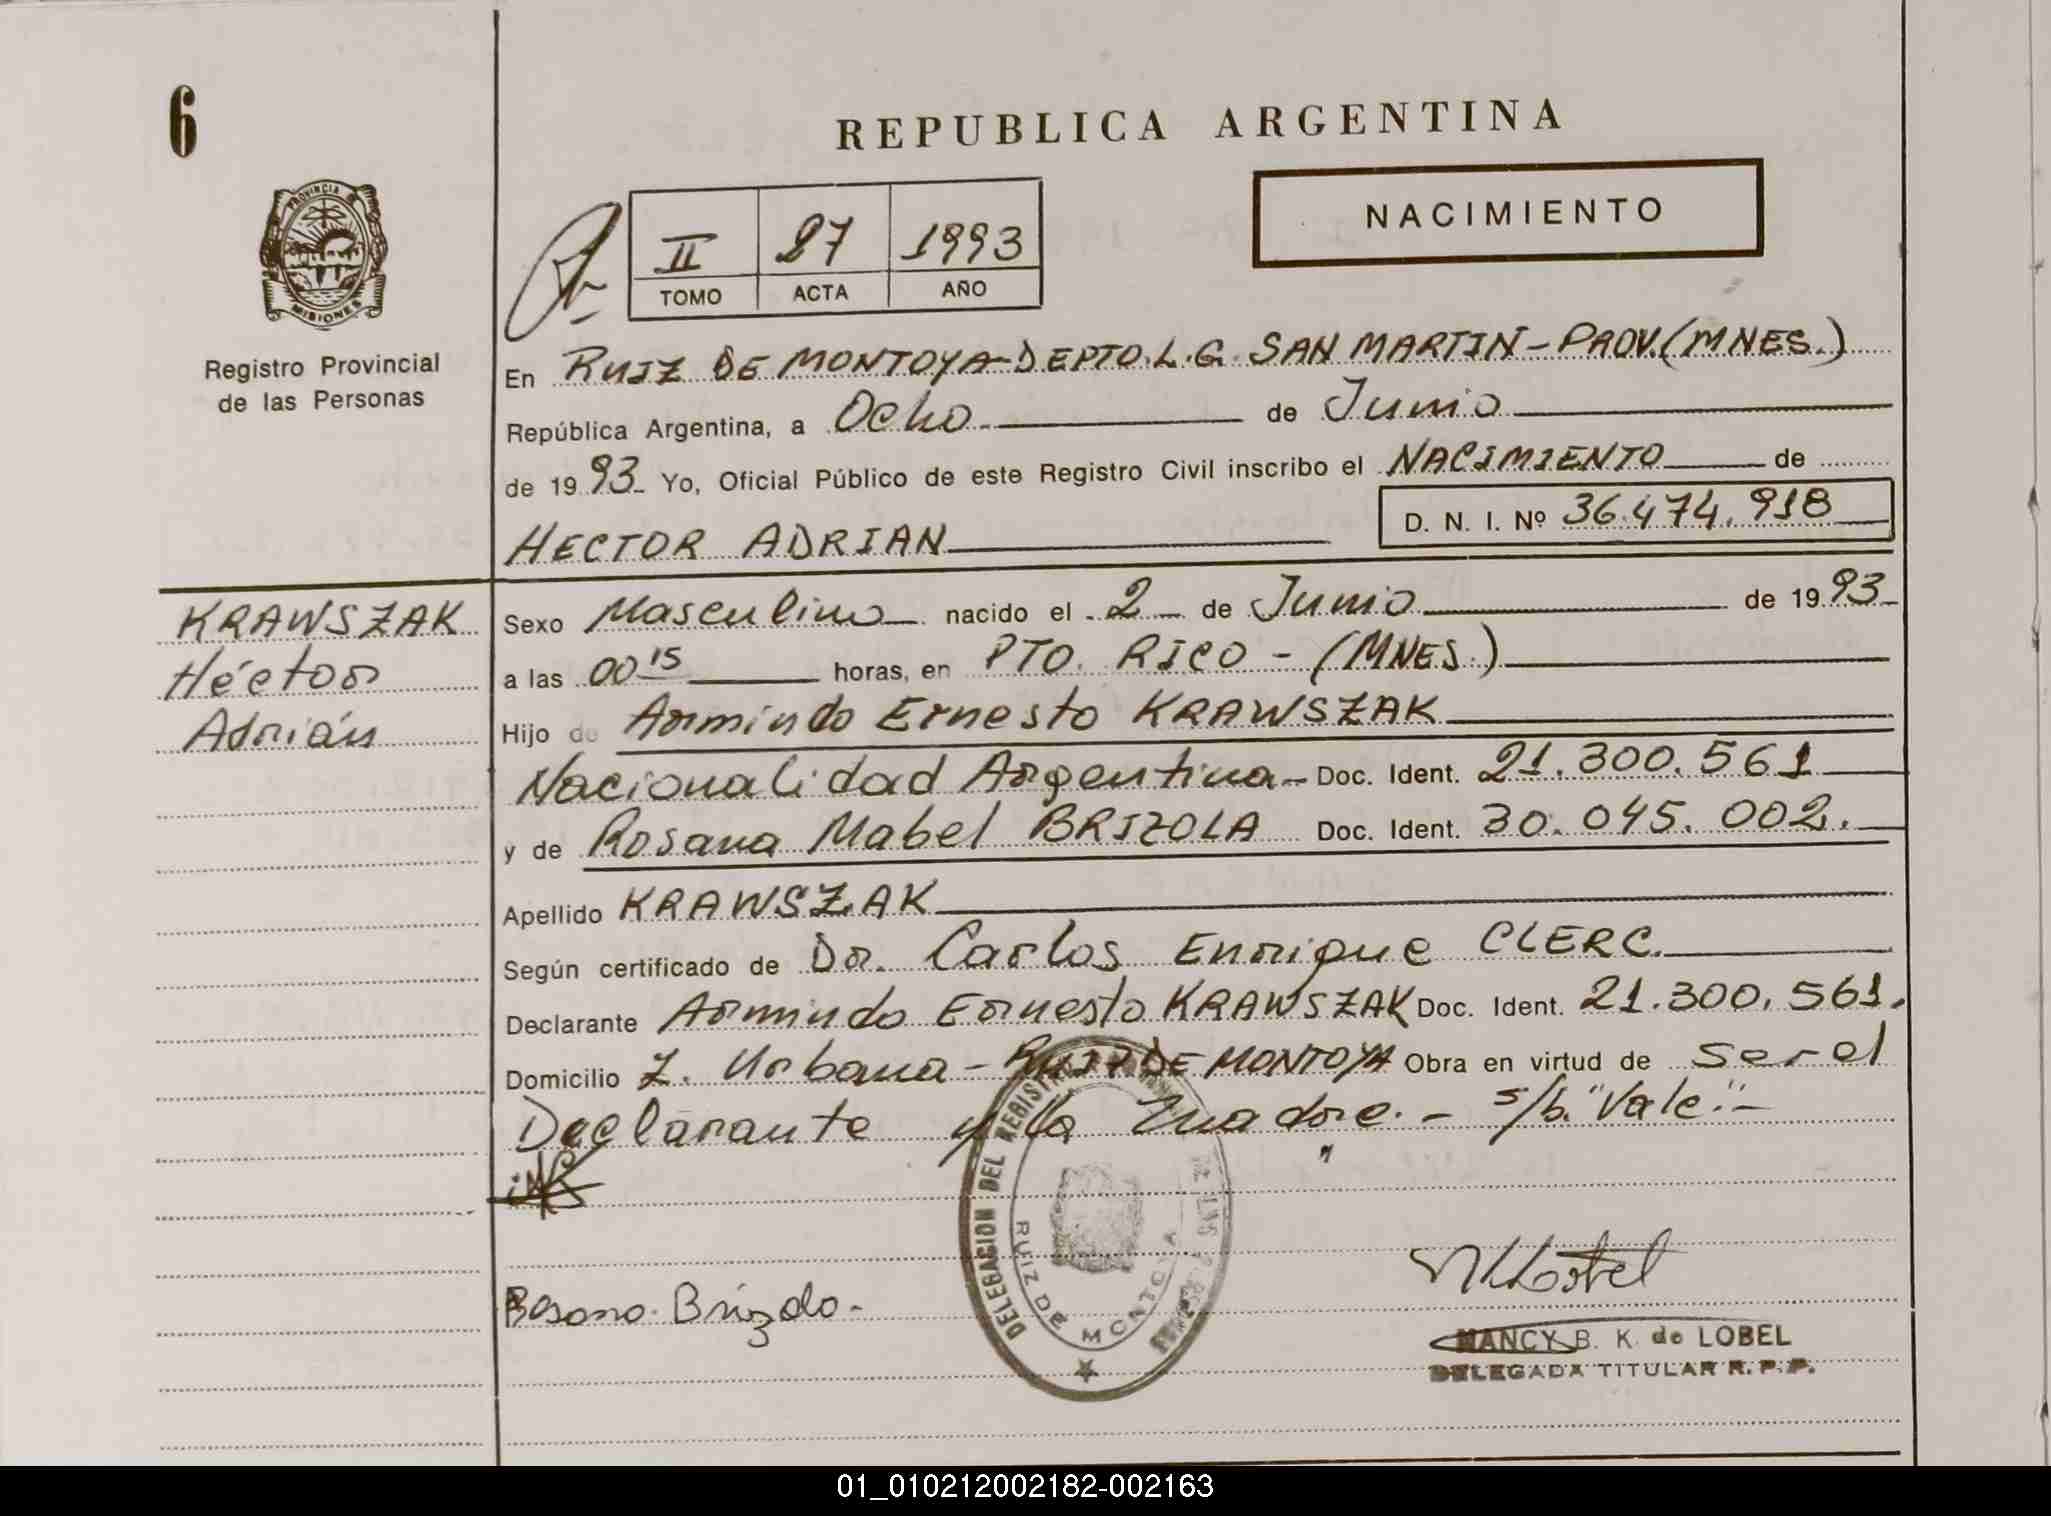 6
REPUBLICA ARGENTINA
NACIMIENTO
II 27 1993
TOMO ACTA AÑO
PROVINCIA
MISIONES
Registro Provincial
de las Personas
En RUIZ DE MONTOYA-DEPTO.L.G. SAN MARTIN-PROV.(MNES.)
República Argentina, a Ocho de Junio
de 1993 Yo, Oficial Público de este Registro Civil inscribo el NACIMIENTO de
D. N. I. Nº 36.474.918
HECTOR ADRIAN
KRAWSZAK
Héctor
Adrián
Sexo Masculino nacido el 2 de Junio de 1993
a las 00 15 horas, en PTO. RICO - (MNES.)
Hijo de Armindo Ernesto KRAWSZAK
Nacionalidad Argentina- Doc. Ident. 21.300.561
y de Rosana Mabel BRIZOLA Doc. Ident. 30.045.002.
Apellido KRAWSZAK
Según certificado de Dr. Carlos Enrique CLERC.
Declarante Armindo Ernesto KRAWSZAK Doc. Ident. 21.300.561.
Domicilio Z. Urbana - RUIZ DE MONTOYA Obra en virtud de ser el
Declarante y la madre. - s/b. "Vale". -
DELEGACION DEL REGISTRO DE LAS
RUIZ DE MONTOYA
NANCY B. K. de LOBEL
DELEGADA TITULAR R. P. P.
01_010212002182-002163